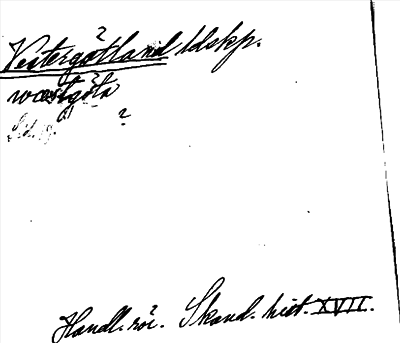 Vestergötland ldskp.
wæstgöta
Handl. rör. Skand. hist. XVII.